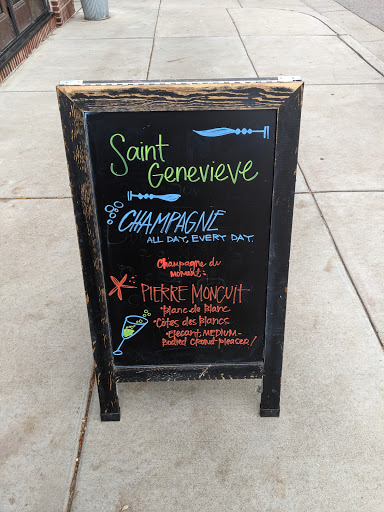 Saint
Genevieve
CHAMPAGNE
ALL DAY, EVERY DAY.
Champagne du
moment:
PIERRE MONCUIT
• Blanc de Blanc
• Côtes des Blancs
• Elegant, MEDIUM-
Bodied crowd-pleaser!